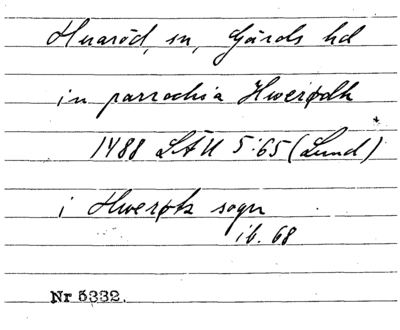 Huaröd, sn, Gärds hd
in parrochia Hwerødh
1488 LÄU 5:65 (Lund)
i Hwerøtz sogn
ib. 68
Nr 5332.